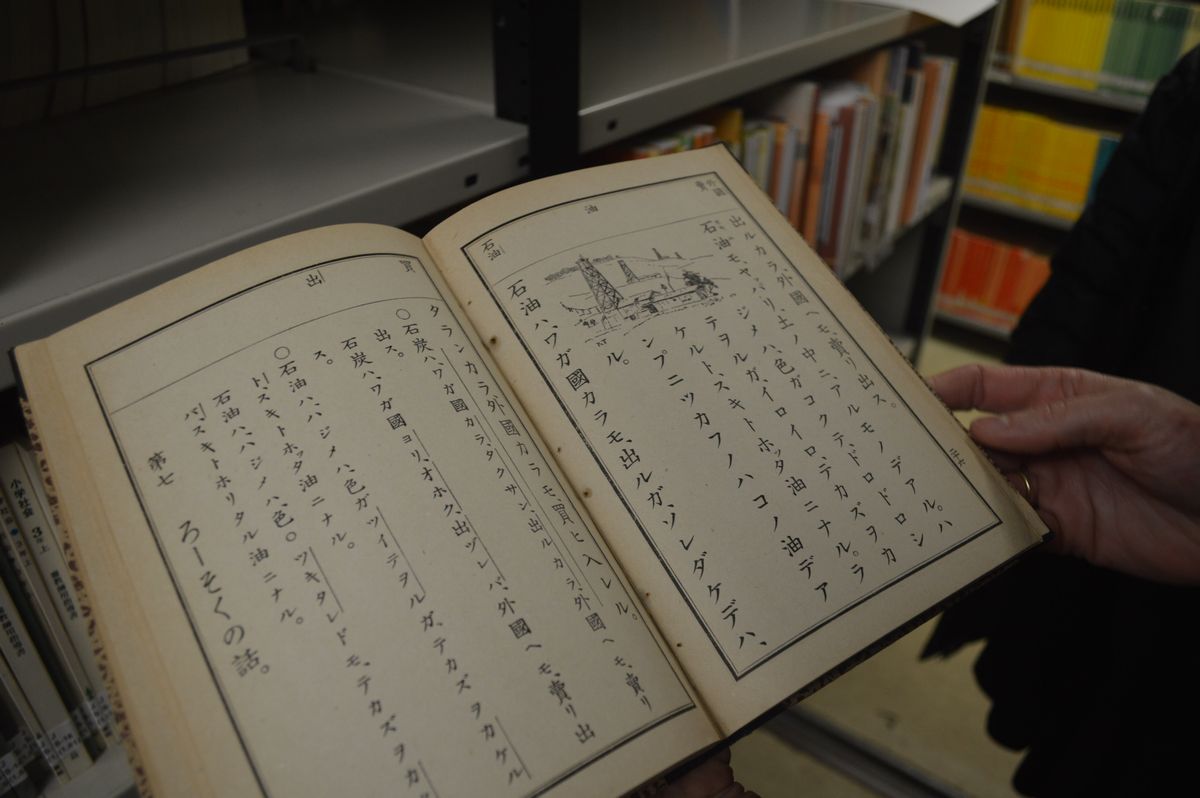 外國
賣
油
石油
出ルカラ、外國ヘモ、賣リ出ス。
石油モ、ヤハリ、土ノ中ニ、アルモノデアル。ハ
ジメハ、色ガコクテ、ドロドロシ
テヲルガ、イロイロ、テカズヲカ
ケルト、スキトホッタ油ニナル。ラ
ンプニツカフノハコノ油デア
ル。
石油ハ、ワガ國カラモ、出ルガ、ソレダケデハ、
買
出
タランカラ外國カラモ、買ヒ入レル。
○石炭ハ、ワガ國カラ、タクサン、出ルカラ、外國ヘモ、賣リ
出ス。
石炭ハ、ワガ國ヨリ、オホク、出ヅレバ、外國ヘモ、賣リ出
ス。
○石油ハ、ハジメハ、色ガツイテヲルガ、テカズヲカケル
ト、スキトホッタ油ニナル。
石油ハ、ハジメハ、色○ツキタレドモ、テカズヲカ
バ、スキトホリタル油ニナル。
第七 ろーそくの話。
小学社会 3上